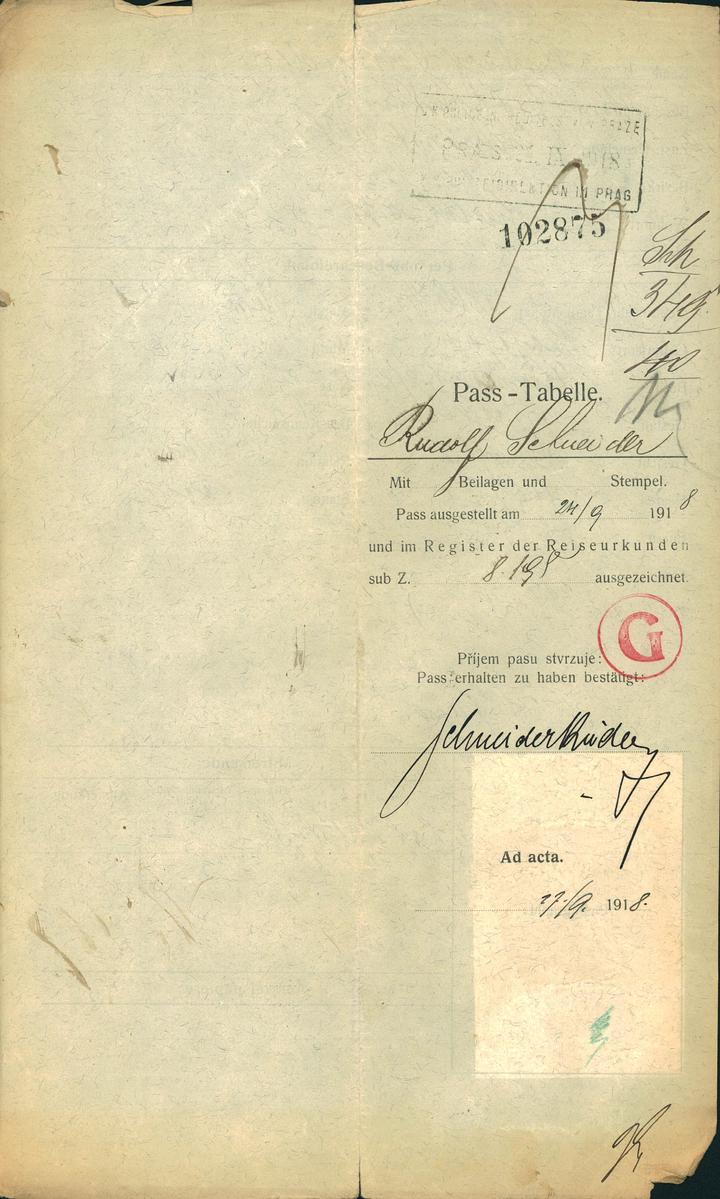 PRAZE
PRAES. IX 1918
POLIZEIDIREKTION IN PRAG
102875
Sch
349
40
Pass-Tabelle.
Rudolf Schneider
Mit Beilagen und Stempel.
Pass ausgestellt am 24/9 1918
und im Register der Reiseurkunden
sub Z. 8.198 ausgezeichnet.
G
Příjem pasu stvrzuje:
Pass erhalten zu haben bestätigt:
Schneider Rudolf
Ad acta.
27/9. 1918.